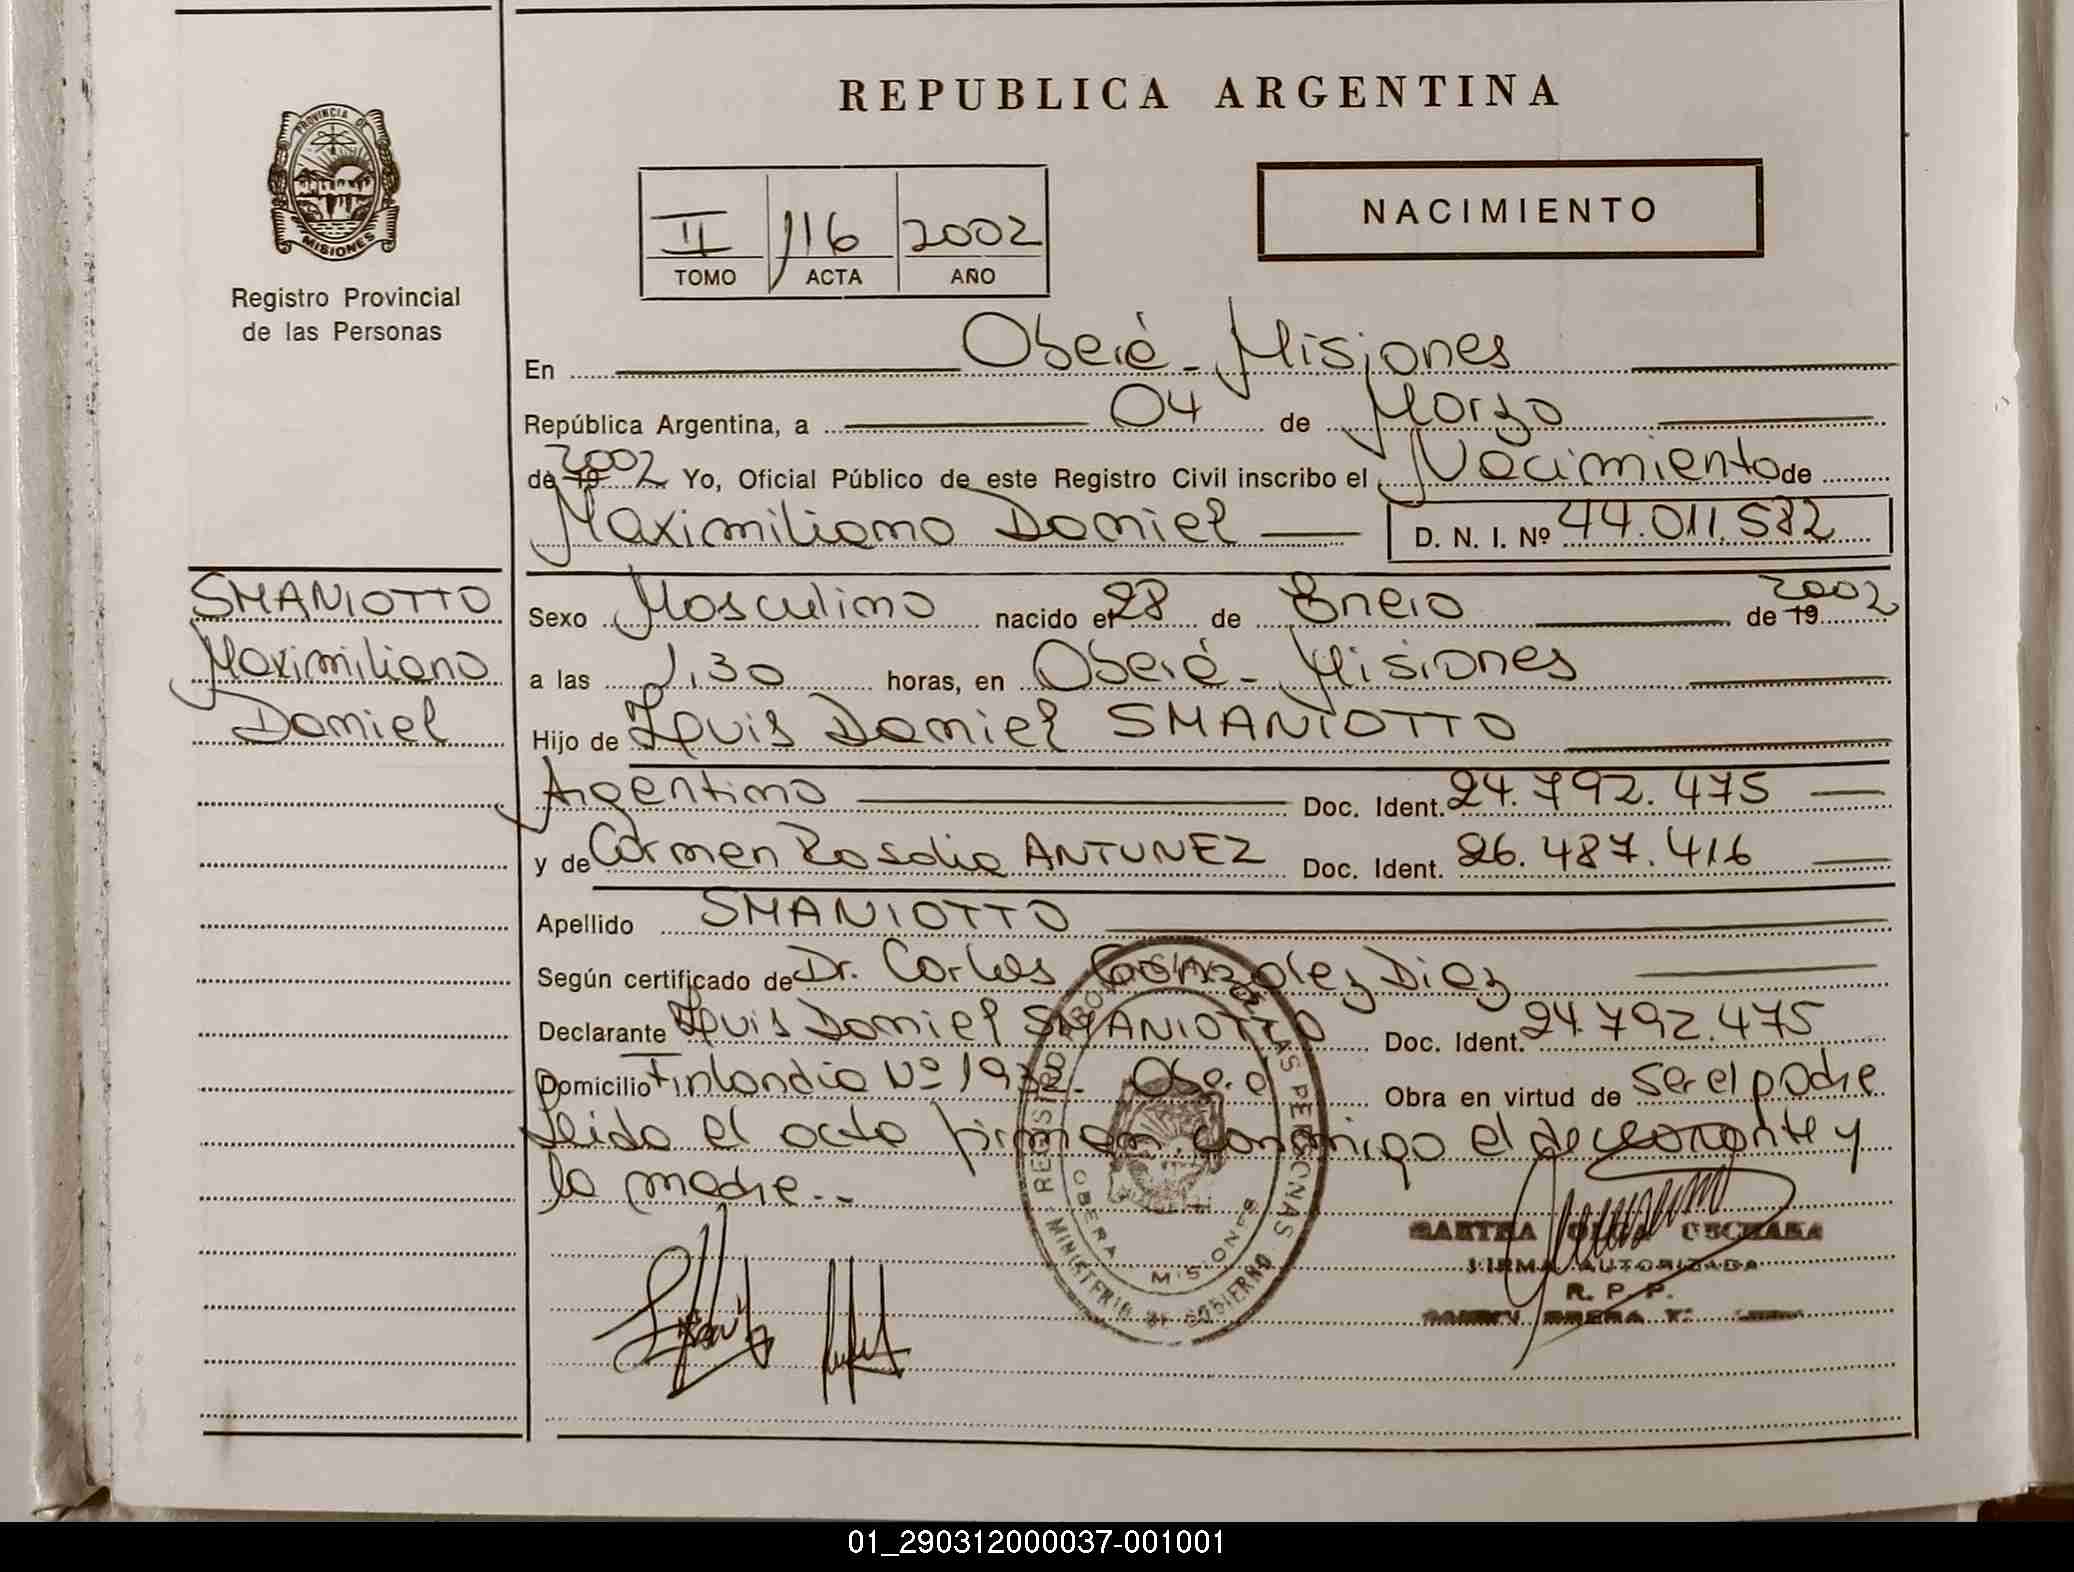 REPUBLICA ARGENTINA
PROVINCIA DE
MISIONES
Registro Provincial
de las Personas
II 116 2002
TOMO ACTA AÑO
NACIMIENTO
En Oberá - Misiones
República Argentina, a 04 de Marzo
de 19 2002 Yo, Oficial Público de este Registro Civil inscribo el Nacimiento de
Maximiliano Daniel D. N. I. Nº 44.011.582
SMANIOTTO
Maximiliano
Daniel
Sexo Masculino nacido el 28 de Enero de 19 2002
a las 1,30 horas, en Oberá - Misiones
Hijo de Luis Daniel SMANIOTTO
Argentino Doc. Ident. 24.792.475
y de Carmen Rosalia ANTUNEZ Doc. Ident. 26.487.416
Apellido SMANIOTTO
Según certificado de Dr. Carlos Gonzalez Diez
Declarante Luis Daniel SMANIOTTO Doc. Ident. 24.792.475
Domicilio Finlandia Nº Oberá Obra en virtud de ser el padre
Leida el acta firman conmigo el declarante y
la madre.-
OBERA MISIONES
MINISTERIO DE GOBIERNO
FIRMA AUTORIZADA
R. P. P.
01_290312000037-001001